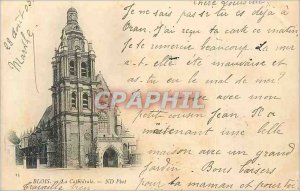 Chère Louise
Je ne sais pas si tu es déjà à
Oran. J'ai reçu ta carte ce matin
je te remercie beaucoup. La mer
a-t-elle été mauvaise et
as-tu eu le mal de mer?
avec mon
petit cousin Jean. Il a
maintenant une belle
maison avec un grand
jardin. Bons baisers
pour ta maman et pour toi
23 août 03
CPARAMA.COM
25
BLOIS. - La Cathédrale. - ND Phot